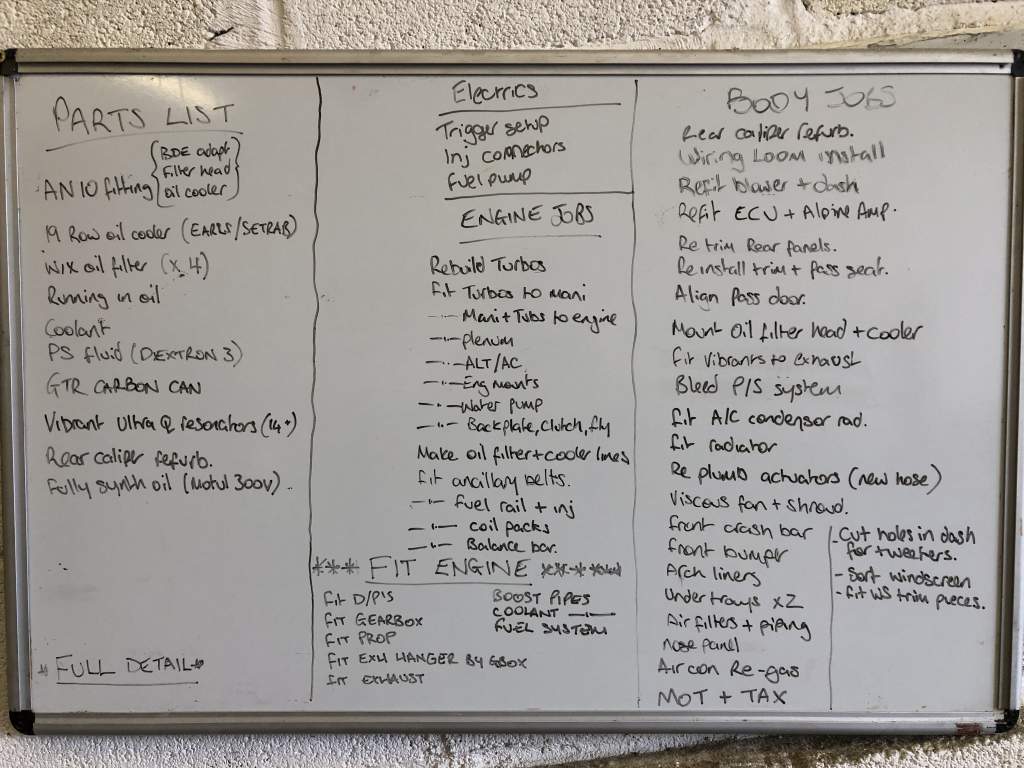 PARTS LIST
AN10 fitting { BDE adapt
filter head
oil cooler }
19 Row oil cooler (EARLS/SETRAB)
WIX oil filter (x 4)
Running in oil
Coolant
PS fluid (DEXTRON 3)
GTR CARBON CAN
Vibrant Ultra Q resonators (14")
Rear caliper refurb.
Fully synth oil (Motul 300V).
* FULL DETAIL *
Electrics
Trigger setup
Inj connectors
fuel pump
ENGINE JOBS
Rebuild Turbos
fit Turbos to mani
—"— Mani + Tubs to engine
—"— plenum
—"— ALT/AC
—"— Eng mounts
—"— Water pump
—"— Backplate, clutch, fly
Make oil filter + cooler lines
fit ancillary belts.
—"— fuel rail + inj
—"— coil packs
—"— Balance bar.
*** FIT ENGINE ***
fit D/P'S
FIT GEARBOX
FIT PROP
FIT EXH HANGER BY GBOX
FIT EXHAUST
BOOST PIPES
COOLANT —"—
FUEL SYSTEM
BODY JOBS
Rear caliper refurb.
Wiring Loom install
Refit blower + dash
Refit ECU + Alpine Amp.
Retrim Rear panels.
Reinstall trim + pass seat.
Align Pass door.
Mount Oil filter head + cooler
fit vibrants to exhaust
Bleed P/S system
fit A/C condensor rad.
fit radiator
Re plumb actuators (new hose)
Viscous fan + shroud.
front crash bar
front bumper
Arch liners
Undertrays x2
Air filters + piping
nose panel
Aircon Re-gas
MOT + TAX
- Cut holes in dash
for tweeters.
- Sort windscreen
- fit WS trim pieces.